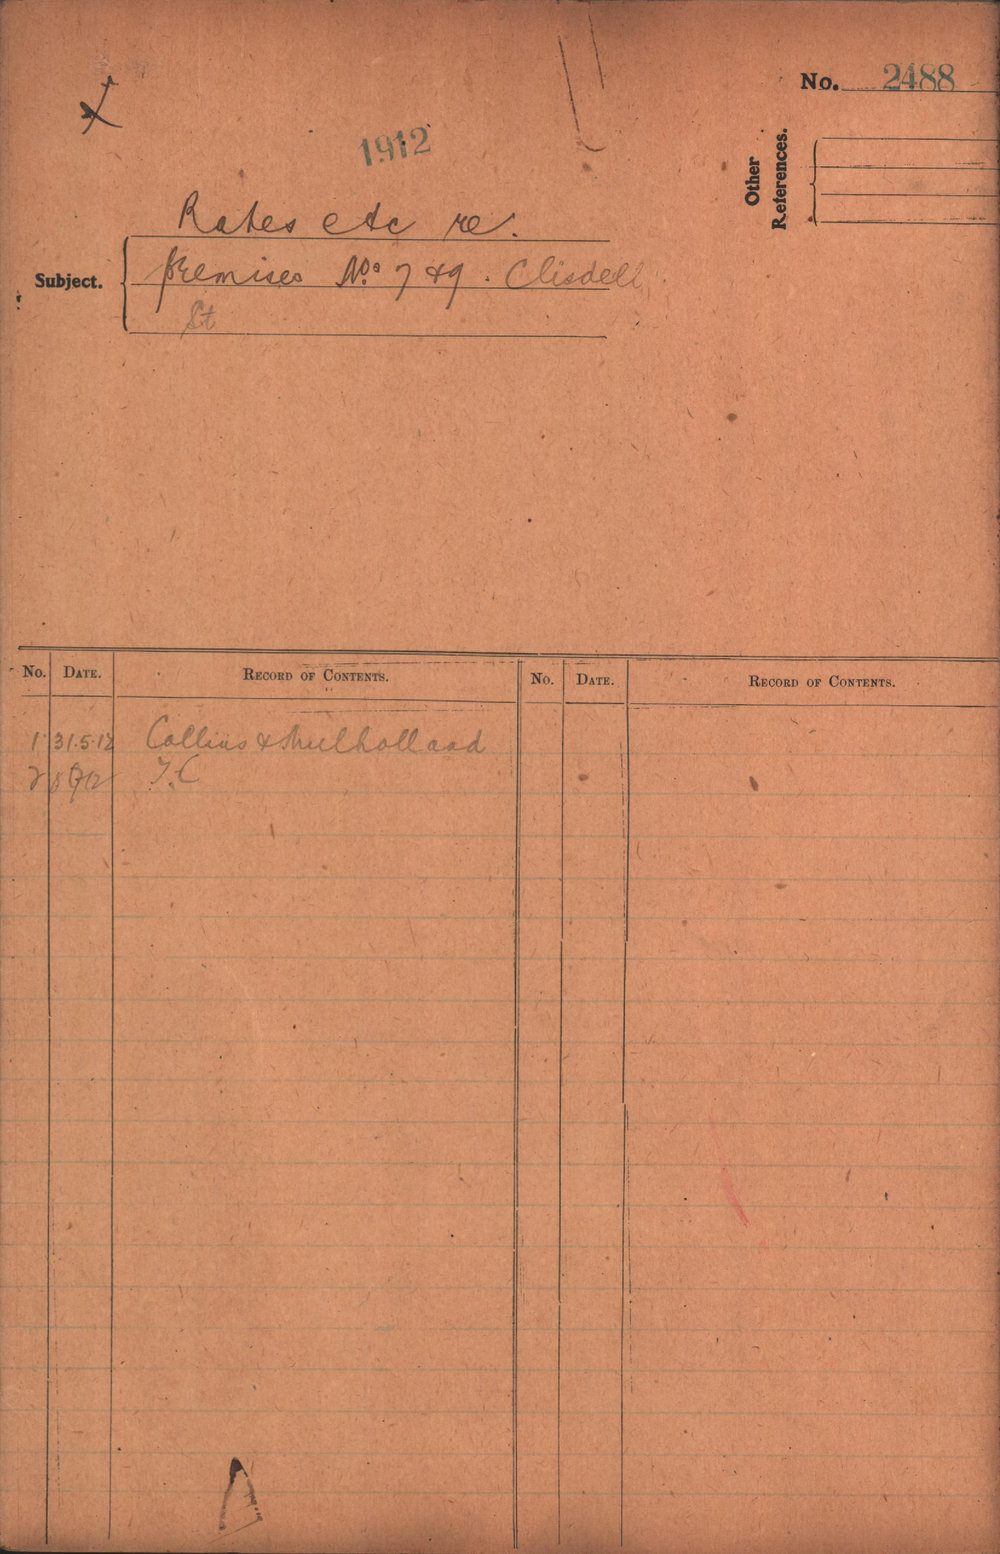 No. 2488
1912
Other
References.
Rates etc re.
Subject.
premises No. 7 & 9. Clisdell
St
No. DATE. RECORD OF CONTENTS. No. DATE. RECORD OF CONTENTS.
1 31.5.12 Collins & Mulholland
2 T.C